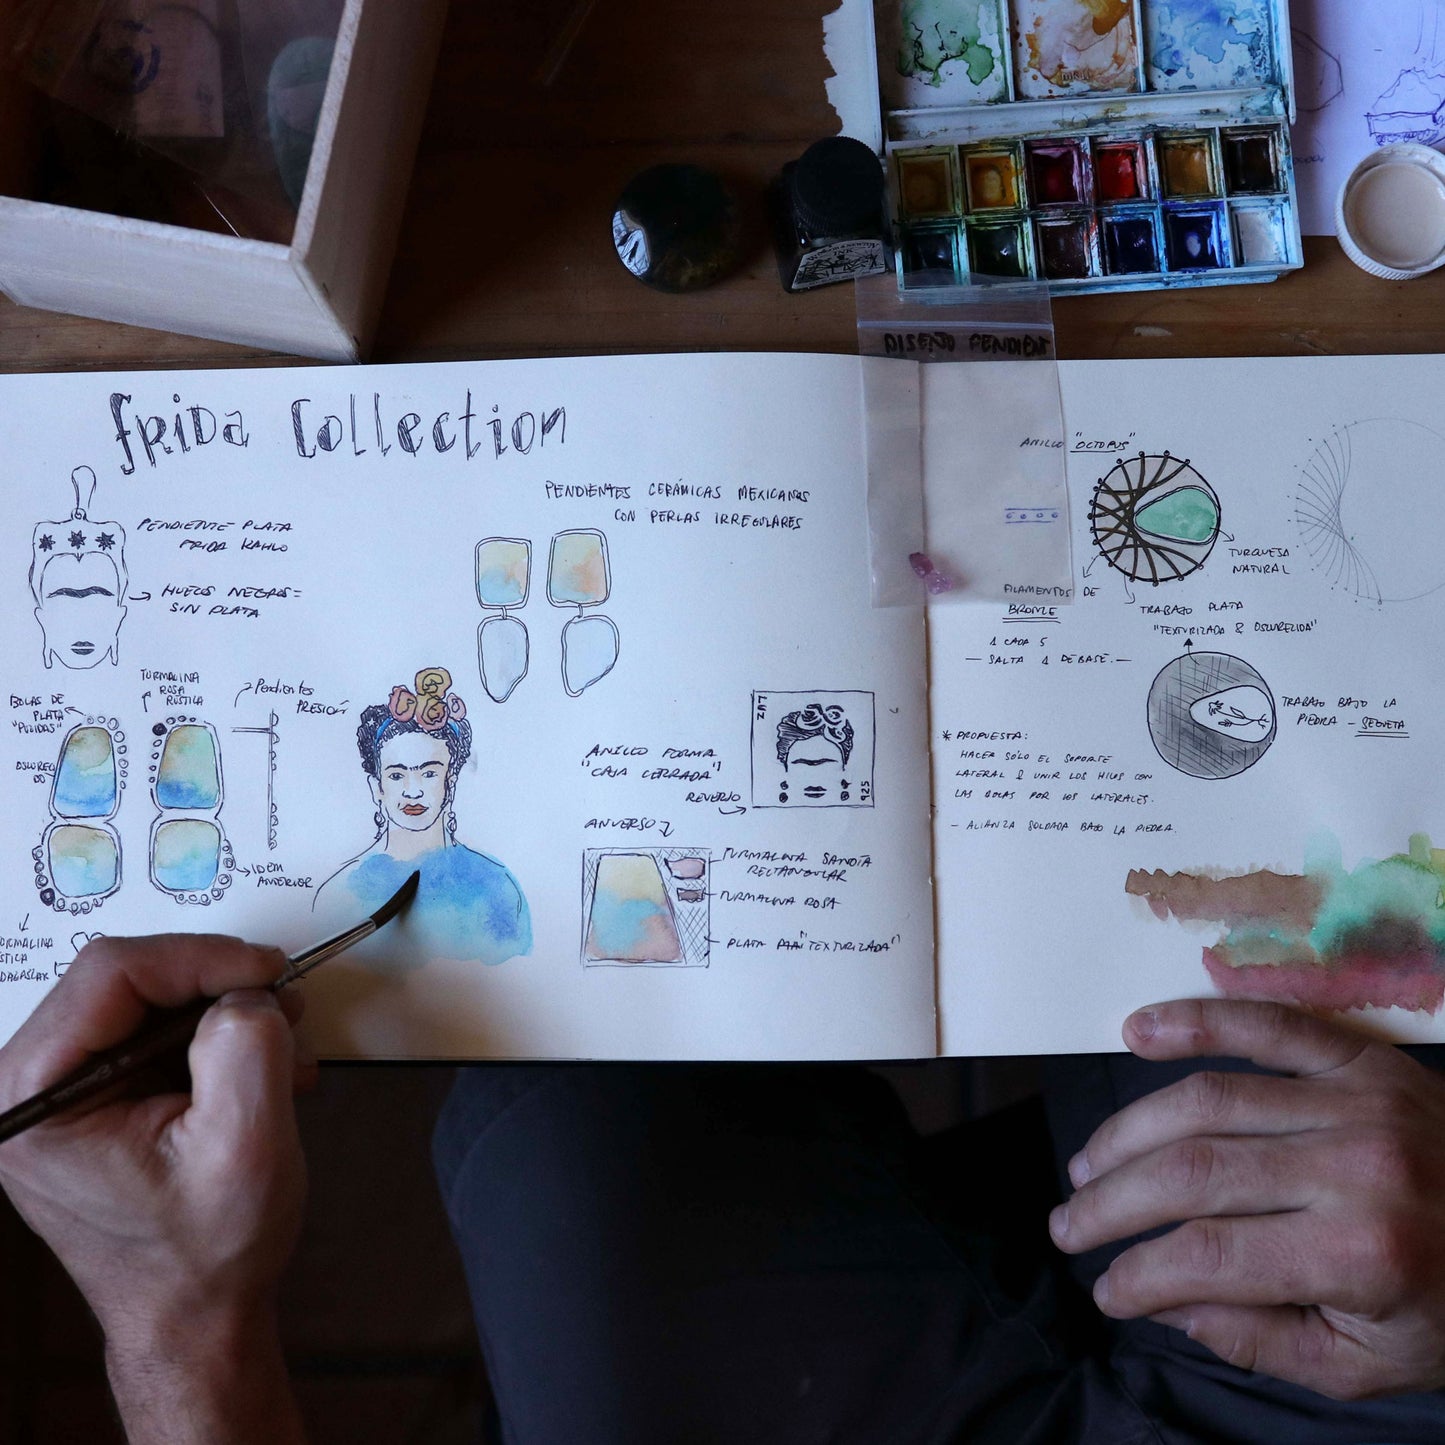 FRIDA COLLECTION
PENDIENTE PLATA
FRIDA KAHLO
HUECOS NEGROS =
SIN PLATA
PENDIENTES CERÁMICAS MEXICANAS
CON PERLAS IRREGULARES
BOLAS DE
PLATA
TURMALINA
ROSA
RÚSTICA
Pendientes
PRESIÓN
IDEM
ANTERIOR
ANILLO FORMA
"CAJA CERRADA"
REVERSO
LUZ
925
ANVERSO
TURMALINA SANDIA
RECTANGULAR
TURMALINA ROSA
PLATA "TEXTURIZADA"
DISEÑO PENDIENT
ANILLO "OCTOPUS"
TURQUESA
NATURAL
FILAMENTOS DE
BRONZE
TRABAJO PLATA
"TEXTURIZADA & OSCURECIDA"
1 CADA 5
— SALTA 1 DE BASE. —
TRABAJO BAJO LA
PIEDRA - SEGUETA
* PROPUESTA:
HACER SÓLO EL SOPORTE
LATERAL & UNIR LOS HILOS CON
LAS BOLAS POR LOS LATERALES.
- ALIANZA SOLDADA BAJO LA PIEDRA.